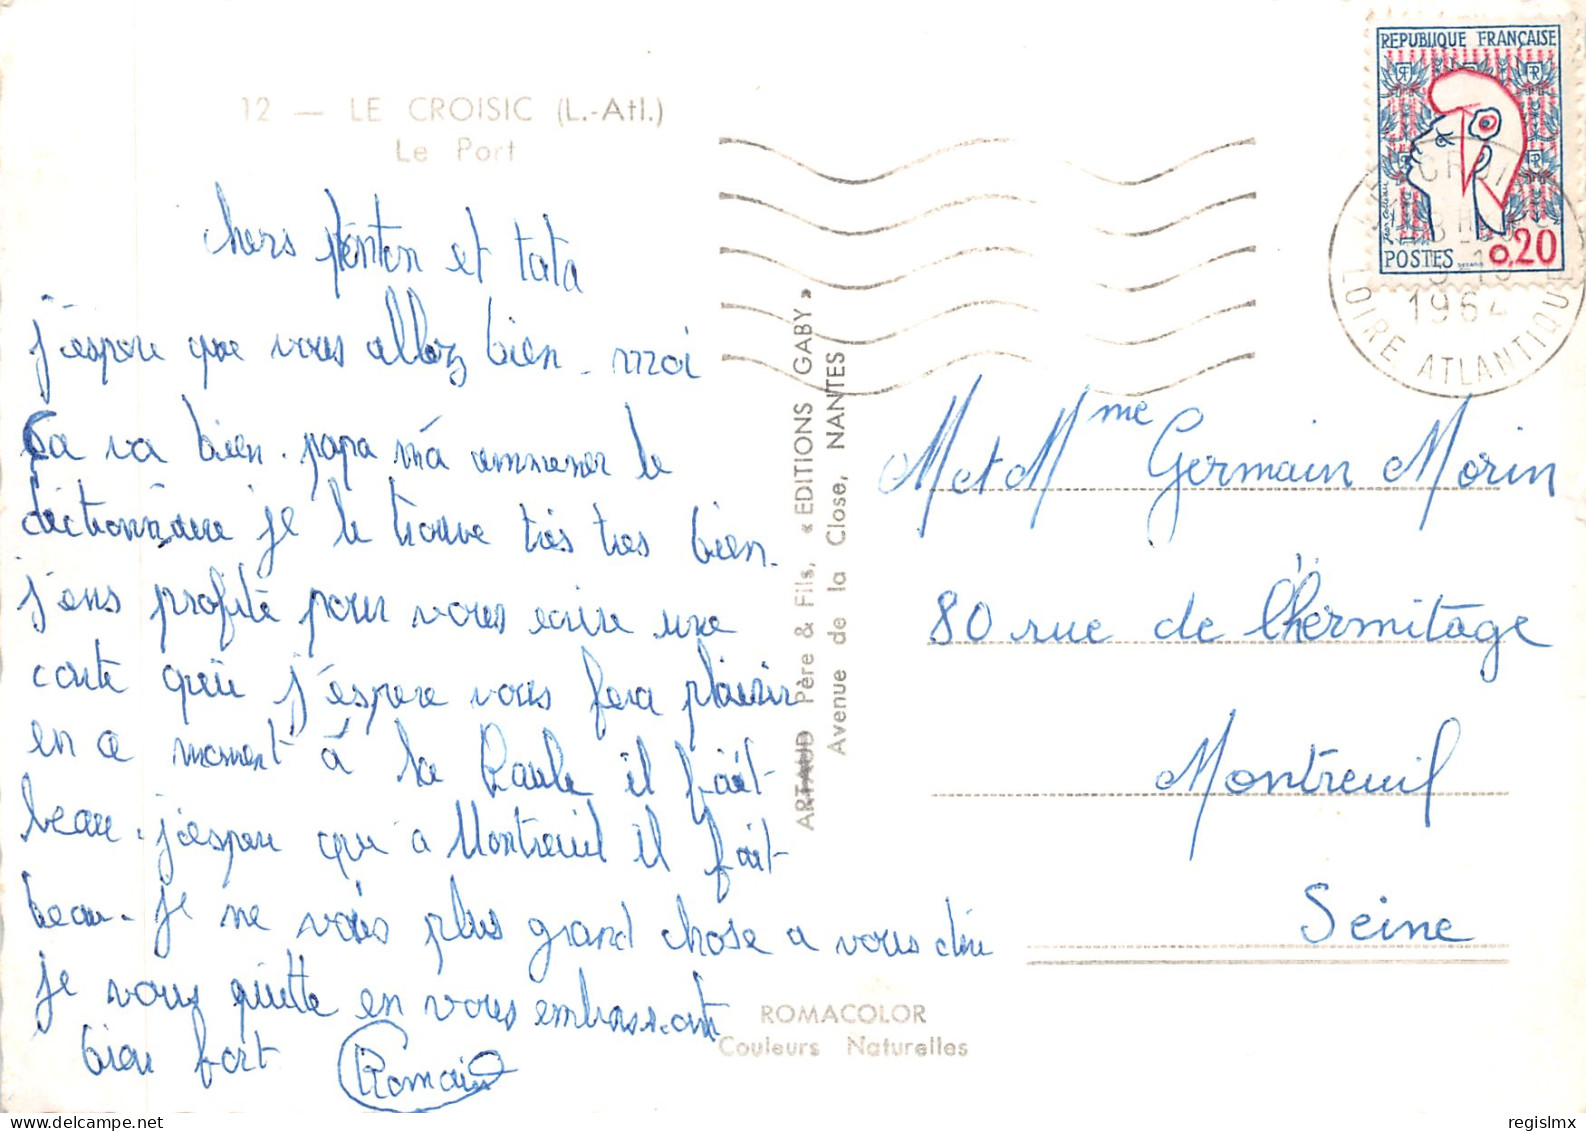 12 — LE CROISIC (L.-Atl.)
Le Port
chers tonton et tata
j'espere que vous allez bien - moi
ça va bien. papa m'a emmener le
dictionnaire je le trouve très tres bien.
j'ens profite pour vous ecrire une
carte que j'espere vous fera plaisir
en ce moment à la Baule il fait
beau. j'espere que a Montreuil il fait
beau. je ne vois plus grand chose a vous dire
je vous quitte en vous embrassant
bien fort Romain
ARTAUD Père & Fils, « EDITIONS GABY »
Avenue de la Close, NANTES
ROMACOLOR
Couleurs Naturelles
REPUBLIQUE FRANÇAISE
RF RF
POSTES 0,20
LE CROISIC
1964
LOIRE ATLANTIQUE
M et Mme Germain Morin
80 rue de l'hermitage
Montreuil
Seine
regislmx